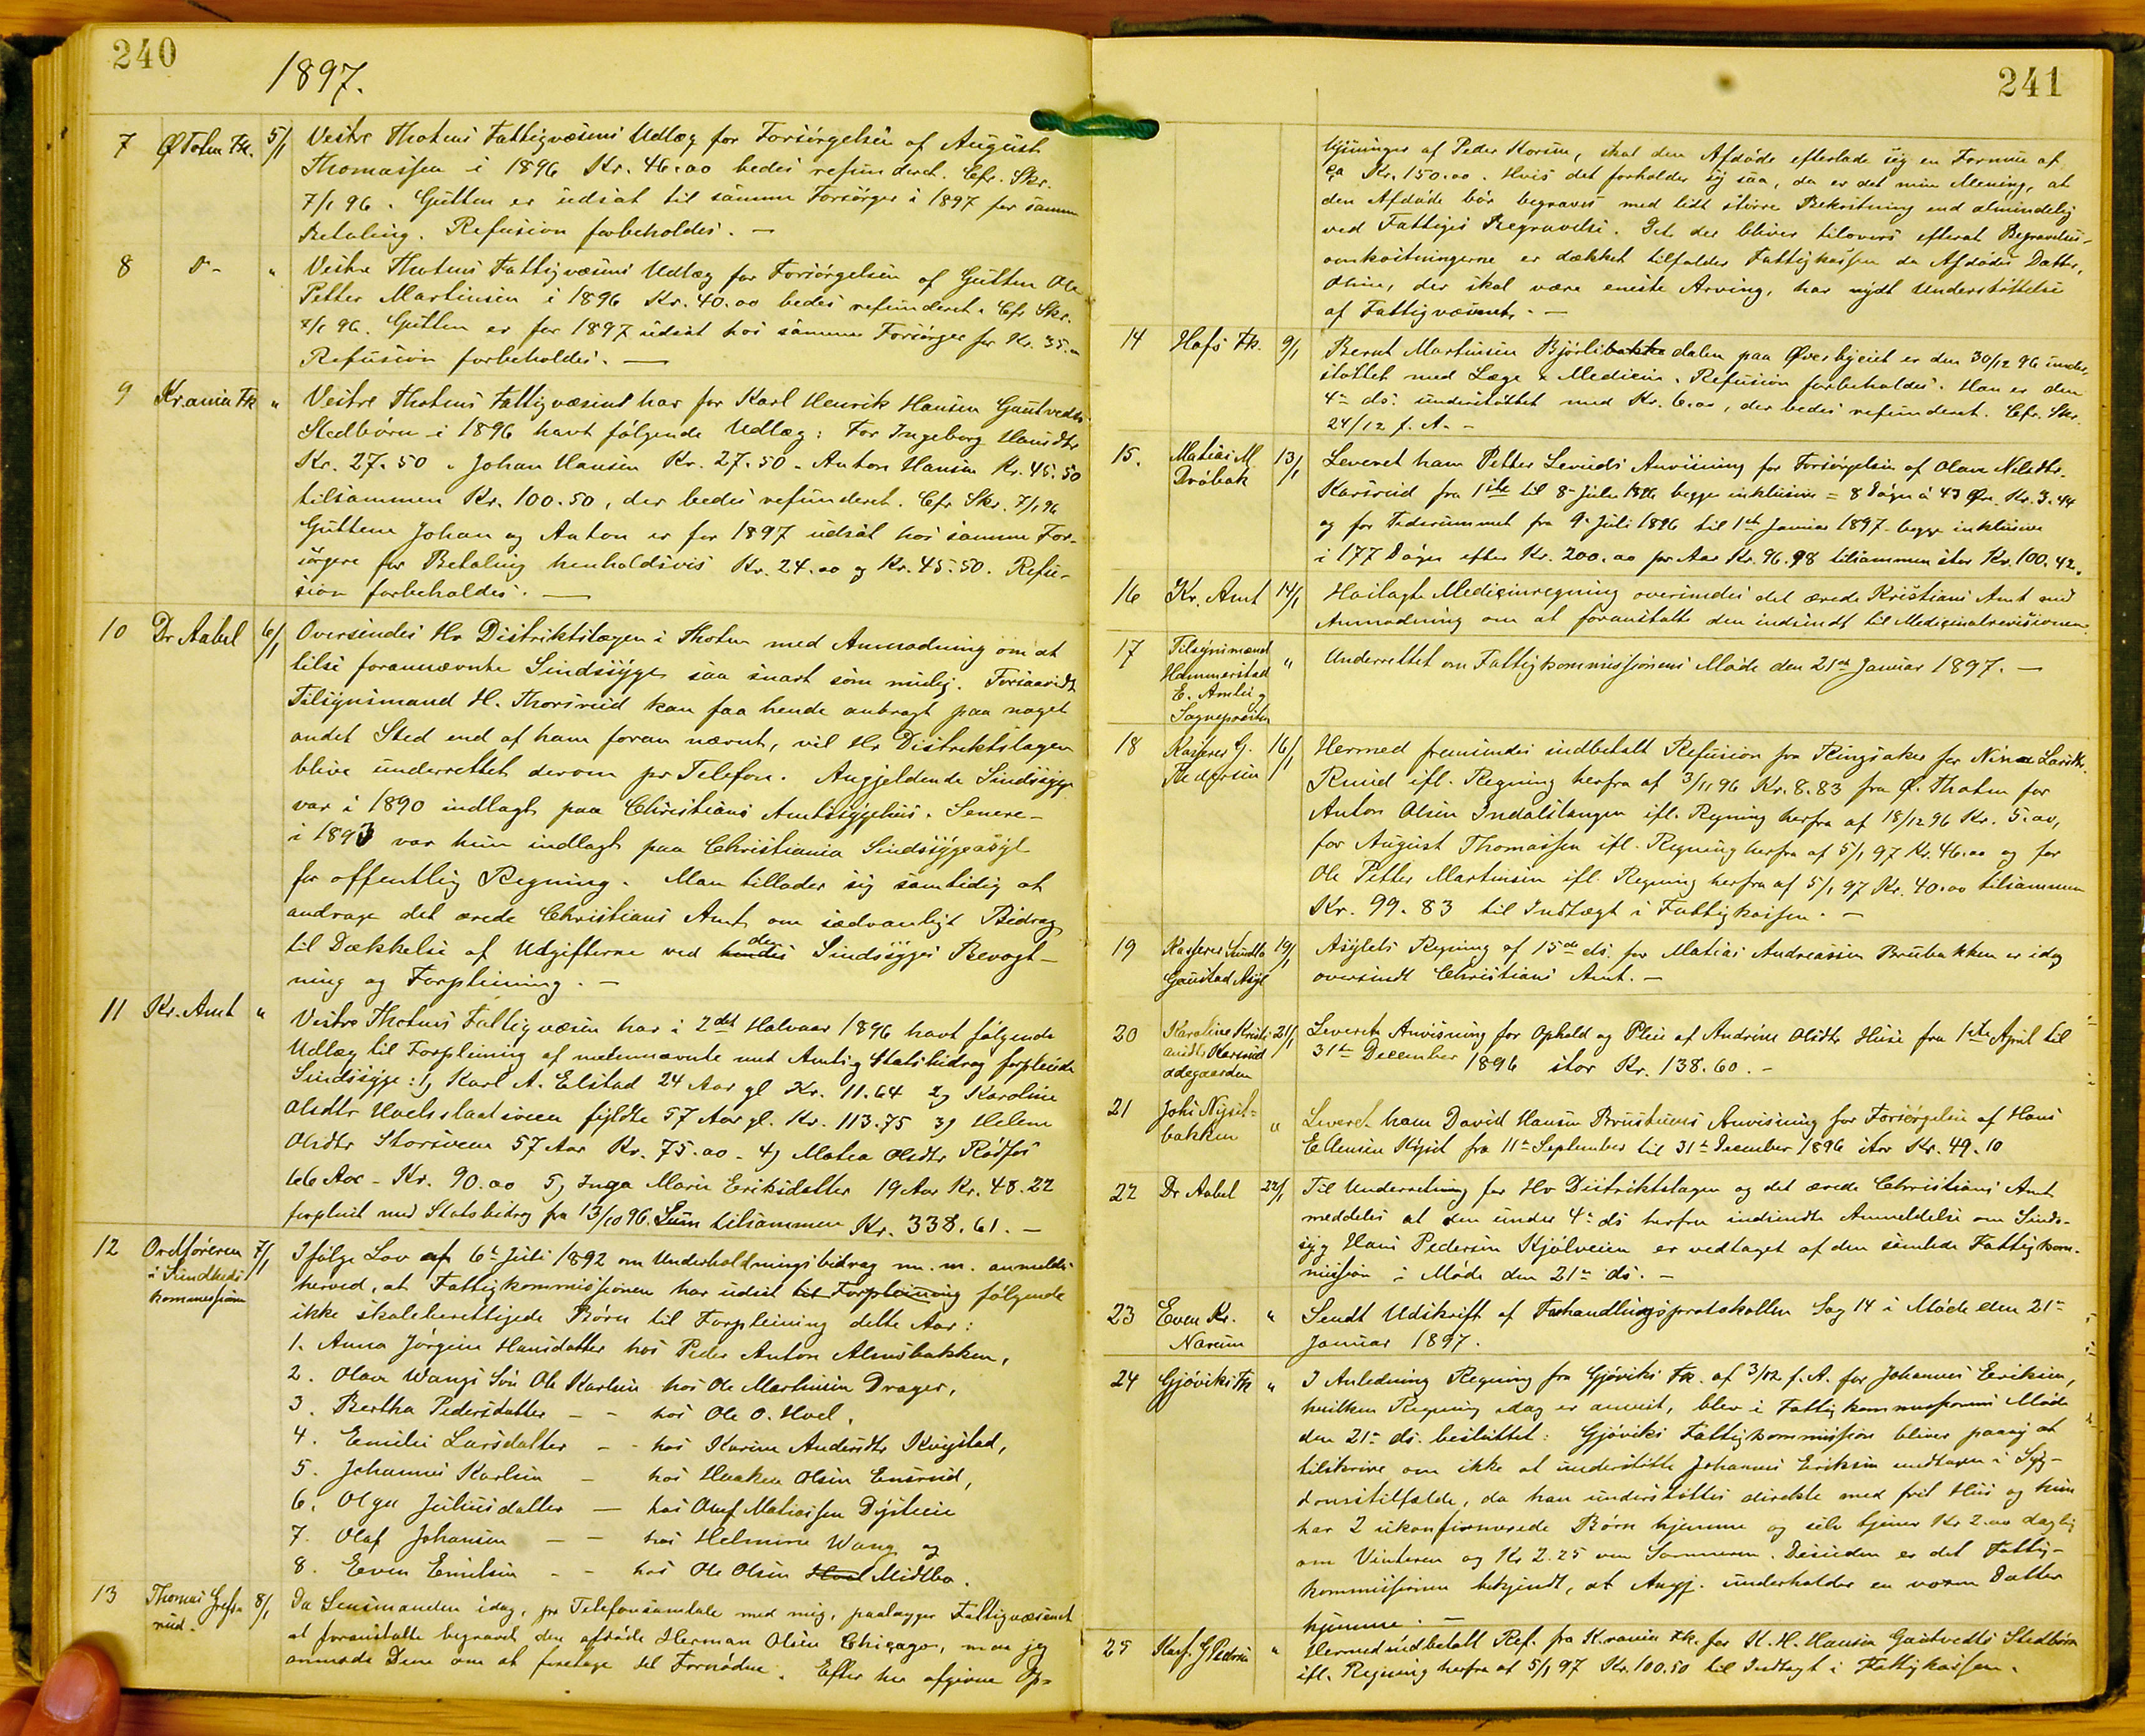 240
1897.
7 Ø Toten Fk. 5/1 Vestre Thotens Fattigvæsens Udlæg for Forsørgelsen af August
Thomassen i 1896 Kr. 46.00 bedes refunderet. Cfr. Skr.
7/1 96. Gutten er udsat til samme Forsørger i 1897 for samme
Betaling. Refusion forbeholdes. —
8 Do - " Vestre Thotens Fattigvæsens Udlæg for Forsørgelsen af Gutten Ole
Petter Martinsen i 1896 Kr. 40.00 bedes refunderet. Cfr Skr.
7/1 96. Gutten er for 1897 udsat hos samme Forsørger for Kr. 35.00
Refusion forbeholdes. —
9 Kr.ania Fk " Vestre Thotens Fattigvæsent har for Karl Henrik Hansen Gautvedts
Stedbørn i 1896 havt følgende Udlæg: For Ingeborg Hansdtr
Kr. 27.50 . Johan Hansen Kr. 27.50 - Anton Hansen Kr. 45.50
tilsammen Kr. 100.50, der bedes refunderet. Cfr Skr. 7/1 96
Guttene Johan og Anton er for 1897 udsat hos samme For-
sørgere for Betaling henholdsvis Kr. 24.00 og Kr. 45.50. Refu-
sion forbeholdes. —
10 Dr Aabel 6/1 Oversendes Hr Distriktslægen i Thoten med Anmodning om at
tilse forannævnte Sindssyge saa snart som mulig. Forsaavidt
Tilsynsmand H. Thorsrud kan faa hende anbragt paa noget
andet Sted end af ham foran nævnt, vil Hr Distriktslægen
blive underrettet derom pr Telefon. Angjeldende Sindssyge
var i 1890 indlagt paa Christians Amtssygehus. Senere -
i 1893 var hun indlagt paa Christiania Sindssygeasyl
for offentlig Regning. Man tillader sig samtidig at
andrage det ærede Christians Amt om sædvanligt Bidrag
til Dækkelse af Udgifterne ved hendes den Sindssyges Bevogt-
ning og Forpleining. —
11 Kr. Amt " Vestre Thotens Fattigvæsen har i 2det Halvaar 1896 havt følgende
Udlæg til Forpleining af nedennævnte med Amts og Statsbidrag forpleiede
Sindssyge: 1) Karl A. Elstad 24 Aar gl Kr. 11.64 2) Karoline
Olsdtr Hoelsslaatsveen fyldte 57 Aar gl. Kr. 113.75 3) Helene
Olsdtr Storsveen 57 Aar Kr. 75.00 - 4) Matea Olsdtr Rødfos
66 Aar - Kr. 90.00 5) Inga Marie Eriksdatter 19 Aar Kr. 48.22
forpleiet med Statsbidrag fra 13/10 96. Sum tilsammen Kr. 338.61. —
12 Ordføreren i Sundheds kommissionen 7/1 Ifølge Lov af 6te Juli 1892 om Underholdningsbidrag m. m. anmeldes
herved, at Fattigkommissionen har udsat til Forpleining følgende
ikke skoleberettigede Børn til Forpleining dette Aar:
1. Anna Jørgine Hansdatter hos Peder Anton Alm​sbakken,
2. Olave Wangs Søn Ole Karlsen hos Ole Martinsen Drager,
3. Bertha Pedersdatter — - hos Ole O. Hoel,
4. Emilie Larsdatter — - hos Karine Andersdtr Kvigstad,
5. Johannes Karlsen — hos Haaken Olsen Ensrud,
6. Olga Juliusdatter — hos Oluf Matiassen Dysteie
7. Olaf Johansen — — hos Helmine Wang og
8. Even Emilsen - - hos Ole Olsen Hoel Midtbo.
13 Thomas Grefsrud. 8/1 Da Lensmanden idag, pr Telefonsamtale med mig, paalægger Fattigvæsenet
at foranstalte begravet den afdøde Herman Olsen Chicago, maa jeg
anmode Dem om at foretage det Fornødne. Efter her afgivne Op-
241
lysninger af Peder Korsen, skal den Afdøde efterlade sig en Formue af
ca Kr. 150.00. Hvis det forholder sig saa, da er det min Mening, at
den Afdøde bør begraves med lidt større Bekostning end almindelig
ved Fattiges Begravelse. Det, der bliver tilovers efterat Begravelses-
omkostningerne er dækket tilfalder Fattigkassen da Afdødes Datter,
Oline, der skal være eneste Arving, har nydt Understøttelse
af Fattigvæsenet. —
14 Hofs Fk. 9/1 Bernt Martinsen Bjørlibakke dalen paa Øverbygeiet er den 30/12 96 under-
støttet med Læge & Medicin. Refusion forbeholdes. Han er den
4de ds. understøttet med Kr. 6.00, der bedes refunderet. Cfr. Skr.
24/12 f. A. -
15. Matias M. Drøbak 13/1 Leveret ham Petter Levuds Anvisning for Forsørgelsen af Olave Nilsdtr.
Karsrud fra 1ste til 8de Juli 1896 begge inklusive = 8 Døgn á 43 Øre Kr. 3.44
og for Tidsrummet fra 9de Juli 1896 til 1ste Januar 1897 begge inklusive
i 177 Døgn efter Kr. 200.00 pr Aar Kr. 96.98 tilsammen stor Kr. 100.42.
16 Kr. Amt 14/1 Hoslagte Medicinregning oversendes det ærede Kristians Amt med
Anmodning om at foranstalte den indsendt til Medicinalrevisionen.
17 Tilsynsmænd Hammerstad E. Amlie og Sognepræsten " Underrettet om Fattigkommissionens Møde den 21de Januar 1897. —
18 Kasserer G. Pedersen 16/1 Hermed fremsendes indbetalt Refusion fra Ringsaker for Nina Larsdtr.
Ruud ifl. Regning herfra af 3/11 96 Kr. 8.83 fra Ø. Thoten for
Anton Olsen Indalstangen ifl. Regning herfra af 18/12 96 Kr. 5.00,
for August Thomassen ifl. Regning herfra af 5/1 97 Kr. 46.00 og for
Ole Petter Martinsen ifl. Regning herfra af 5/1 97 Kr. 40.00 tilsammen
Kr. 99.83 til Indtægt i Fattigkassen. —
19 Kasserer Gaustad Asyl 19/1 Asylets Regning af 15de ds. for Matias Andreassen Brubakken er idag
oversendt Christians Amt. —
20 Karoline Kristiansdtr Karsrud ødegaarden 21/1 Leveret Anvisning for Ophold og Pleie af Andrine Olsdtr Huse fra 1ste April til
31te December 1896 stor Kr. 138.60. -
21 Johs Nyset- bakken " Leveret ham David Hansen Brustuens Anvisning for Forsørgelse af Hans
Ellensen Nyset fra 11te September til 31te December 1896 stor Kr. 49.10
22 Dr Aabel 22/1 Til Underretning for Hr Distriktslægen og det ærede Christians Amt
meddeles at den under 4de ds herfra indsendte Anmeldelse om Sinds-
syg Hans Pedersen Kjølveien er vedtaget af den samlede Fattigkom-
mission i Møde den 21de ds. —
23 Even Kr. Narum " Sendt Udskrift af Forhandlingsprotokollen Sag 14 i Møde den 21de
Januar 1897.
24 Gjøviks Fk " I Anledning Regning fra Gjøviks Fk. af 3/12 f. A. for Johannes Eriksen,
hvilken Regning idag er anvist, blev i Fattigkommissionens Møde
den 21de ds. besluttet: Gjøviks Fattigkommission bliver paany at
tilskrive om ikke at understøtte Johannes Eriksen undtagen i Syg-
domstilfælde, da han understøttes direkte med frit Hus og kun
har 2 ukonfirmerede Børn hjemme og selv tjener Kr 2.00 daglig
om Vinteren og Kr 2.25 om Sommeren. Desuden er det Fattig-
kommissionen bekjendt, at Angj. underholder en voxen Datter
hjemme. —
25 Kass. G Pedersen " Hermed indbetalt Ref. fra Kr.ania Fk. for K. H. Hansen Gautvedts Stedbørn
ifl. Regning herfra af 5/1 97 Kr. 100.50 til Indtægt i Fattigkassen.